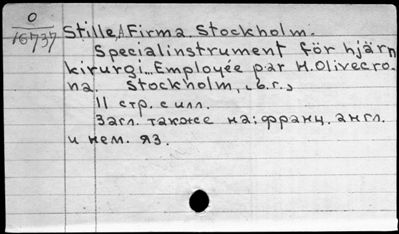 0
16737
Stille, A. Firma. Stockholm.
Specialinstrument för hjärn
kirurgi... Employée par H. Olivecro-
na. Stockholm, [б.г.],
11 стр. с илл.
Загл. также на: франц. англ.
и нем. яз.